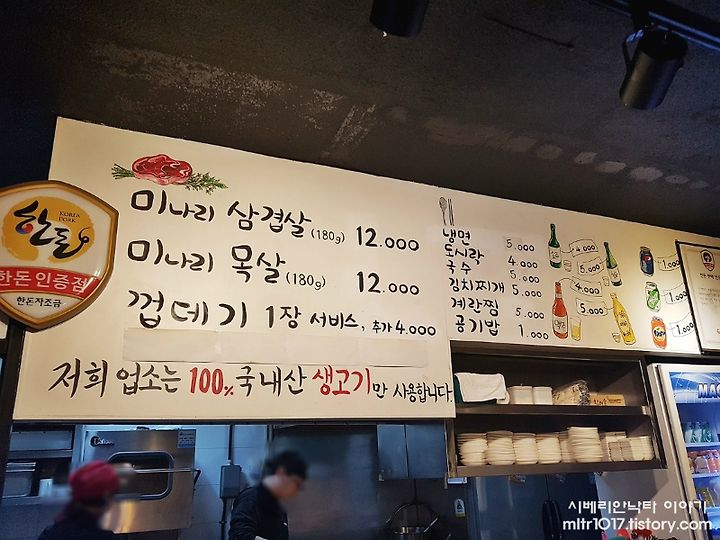 한돈
KOREA PORK
한돈인증점
한돈자조금
미나리 삼겹살 (180g) 12.000
미나리 목살 (180g) 12.000
껍데기 1장 서비스, 추가 4.000
저희 업소는 100% 국내산 생고기만 사용합니다
냉면 5.000
도시락 4.000
국수 5.000
김치찌개 5.000
계란찜 5.000
공기밥 1.000
4.000
4.000
5.000
1.000
1.000
시베리안낙타 이야기
mltr1017.tistory.com